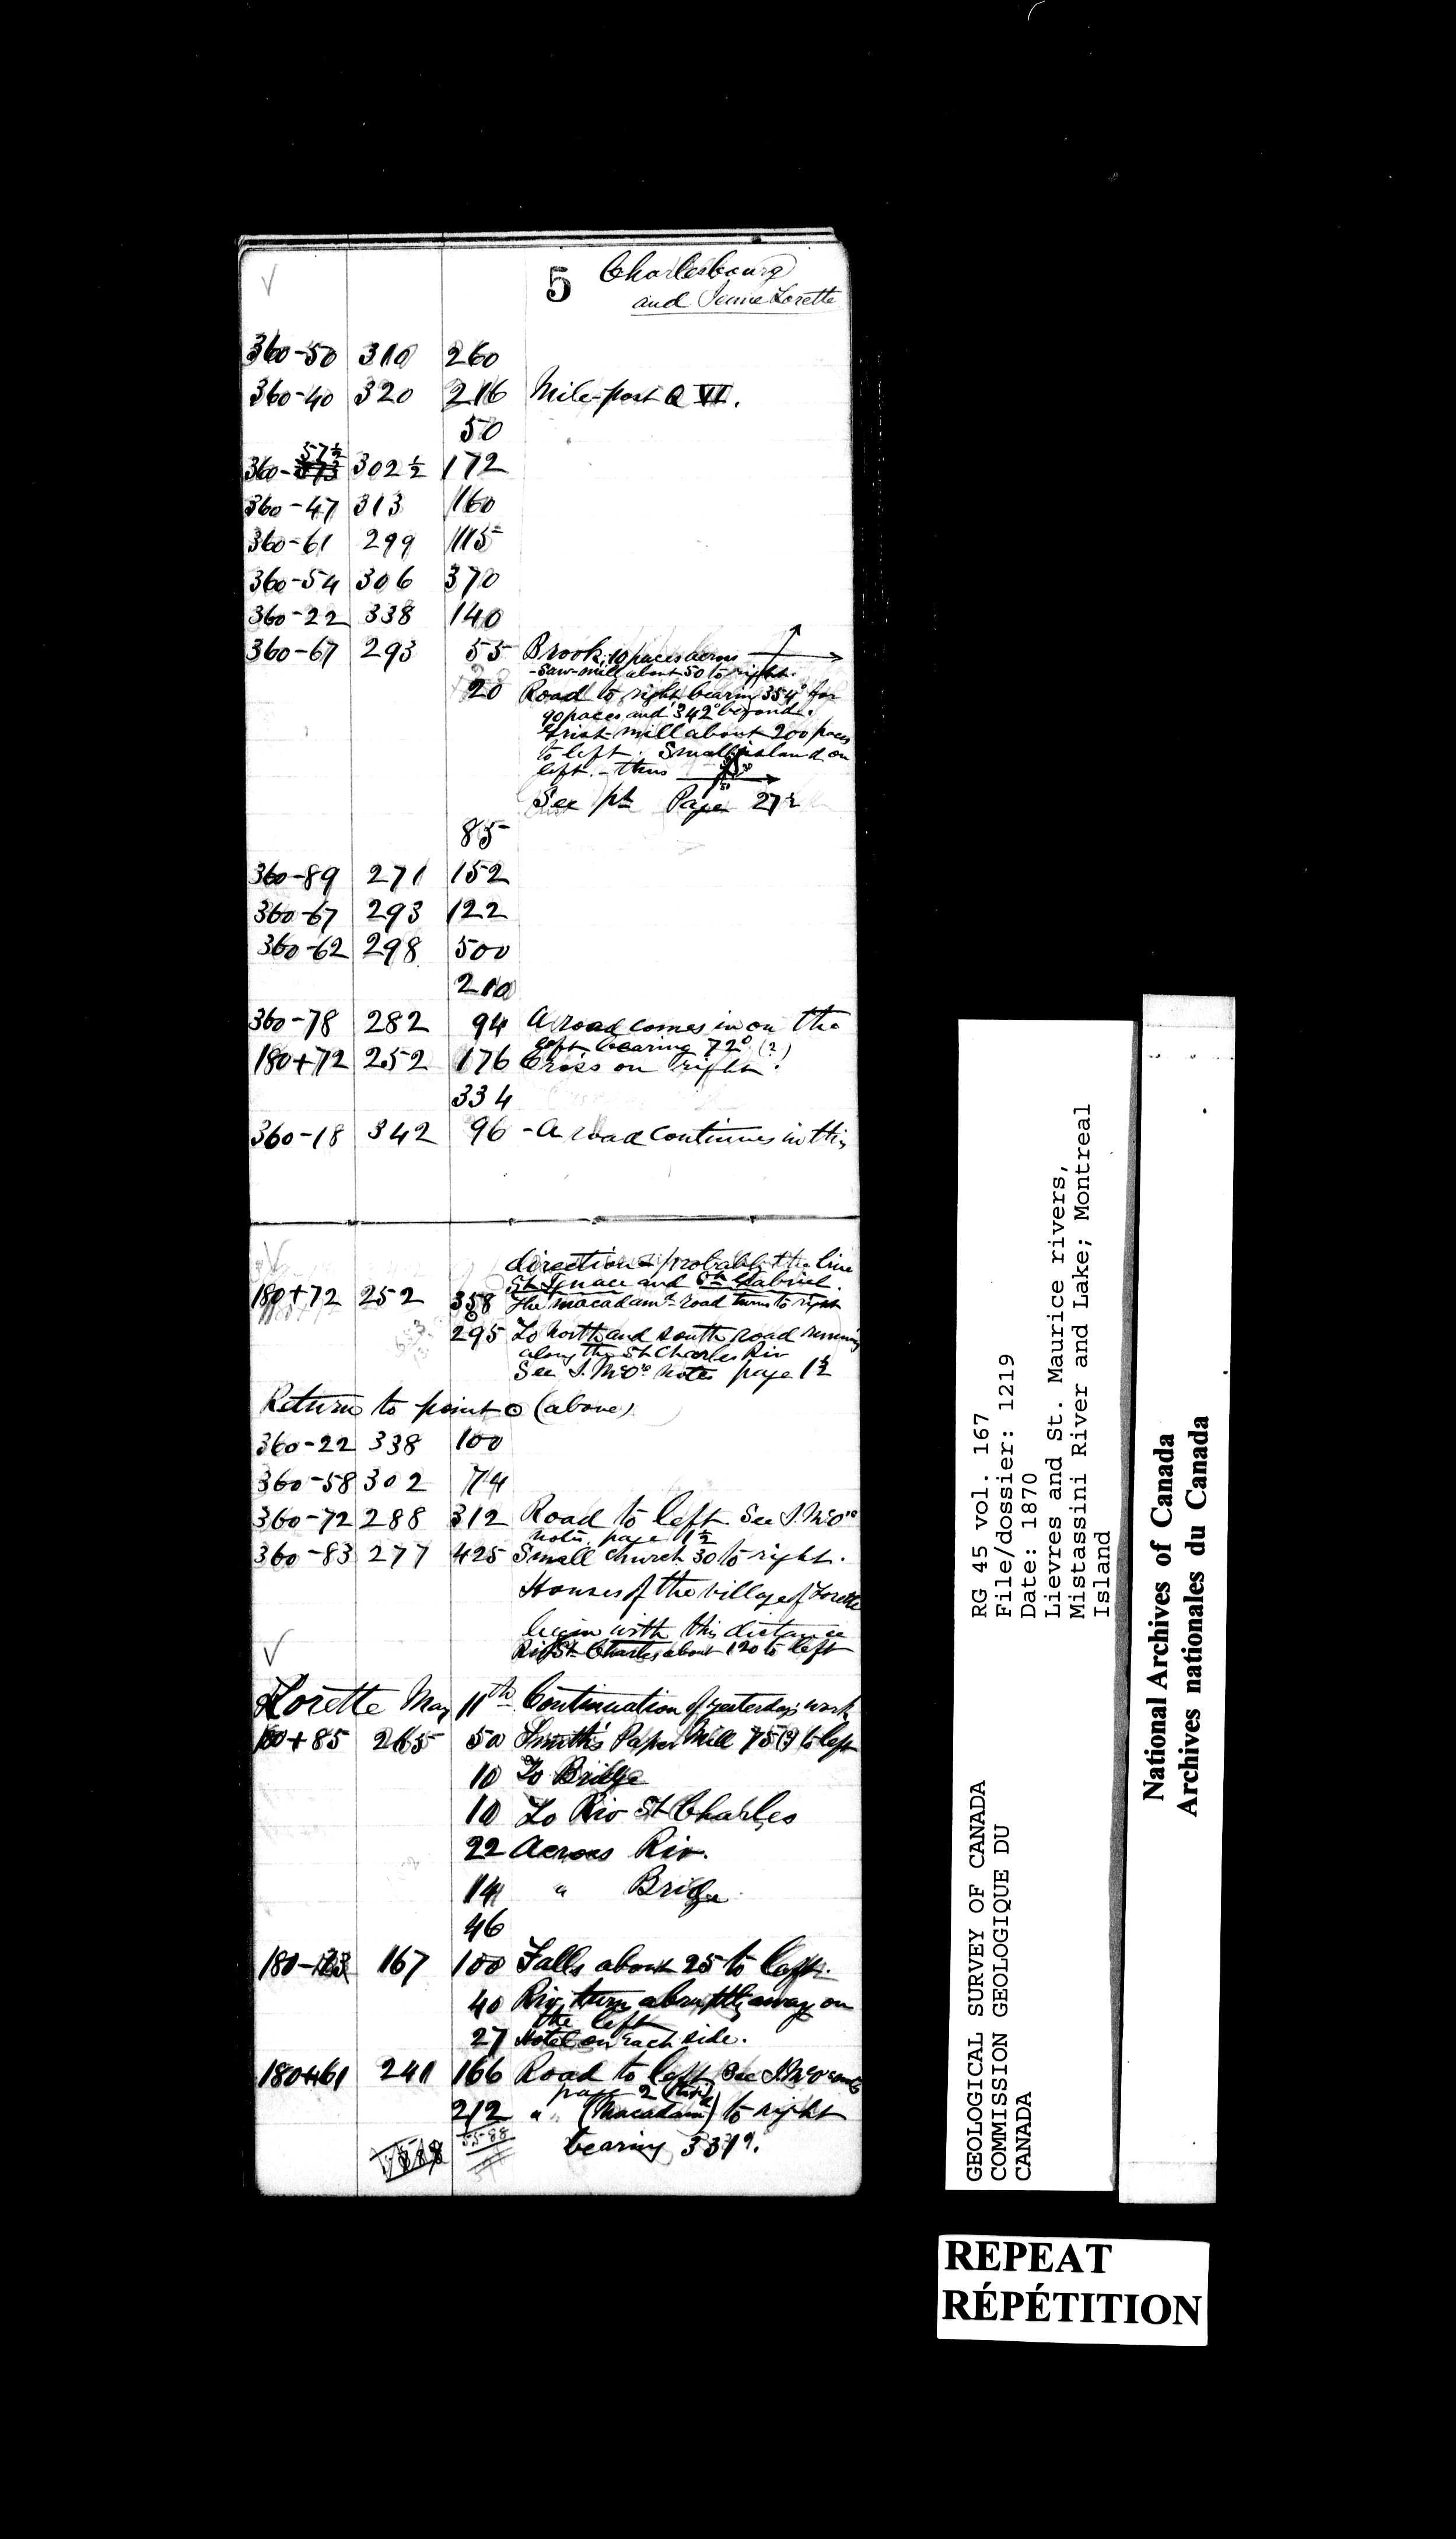 5 Charlesbourg
and Jeune Lorette
360-50 310 260
360-40 320 216 Mile-post Q VI.
50
57½
360- 302½ 172
360-47 313 160
360-61 299 115
360-54 306 370
360-22 338 140
360-67 293 55 Brook, 10 paces across
-Saw-mill about 50 to right.
20 Road to right bearing 354° for
90 paces and 342° beyond.
Grist-mill about 200 paces
to left. Small island on
left. - thus
See pt Page 27½
85
360-89 271 152
360-67 293 122
360-62 298 500
210
360-78 282 94 A road comes in on the
left bearing 72° (?)
180+72 252 176 Cross on right.
334
360-18 342 96 - A road continues in this
direction - probably the line
St Ignace and St Gabriel.
180+72 252 358 The macadamd road turns to right
295 To north and south road running
along the St Charles Riv
See J. McO's notes page 1½
Return to point ⊙ (above)
360-22 338 100
360-58 302 74
360-72 288 312 Road to left. See J. McO's
notes. page 1½
360-83 277 425 Small church 30 to right.
Houses of the village of Lorette
begin with this distance
Riv St Charles about 120 to left
Lorette May 11th Continuation of yesterday's work
180+85 265 50 Smith's Paper Mill 75(?) to left
10 To Bridge
10 To Riv St Charles
22 Across Riv.
14 " Bridge
46
180- 167 100 Falls about 25 to left.
40 Riv. turns abruptly away on
the left
27 Hotel on each side.
180+61 241 166 Road to left See J. McO's
page 2
212 " (Macadam) to right
5588
bearing 331°.
GEOLOGICAL SURVEY OF CANADA
COMMISSION GEOLOGIQUE DU
CANADA
RG 45 vol. 167
File/dossier: 1219
Date: 1870
Lievres and St. Maurice rivers,
Mistassini River and Lake; Montreal
Island
National Archives of Canada
Archives nationales du Canada
REPEAT
RÉPÉTITION